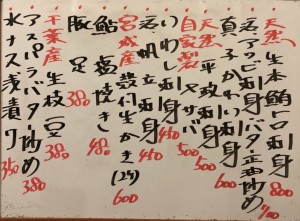 天然生本鮪トロ刺身 800
活アワビ刺身バター正油炒め 700
真子かれい刺身 600
天然平政刺身 500
自家製〆サバ 500
いわし刺身 450
活帆立刺身 450
宮城産殻付生かき(2ケ) 600
鮎塩焼き 480
豚足 380
千葉産生枝豆 380
アスパラバター炒め 380
水ナス浅漬け 350